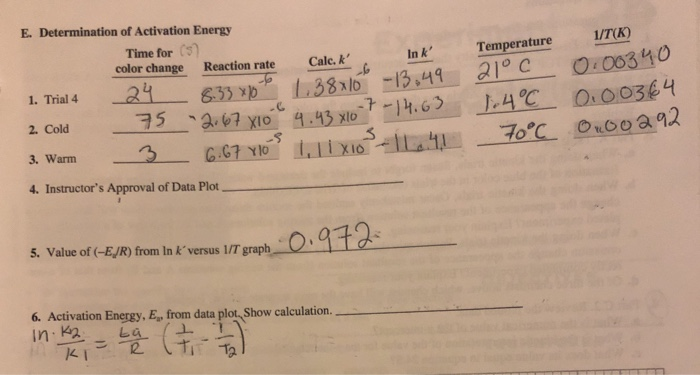 E. Determination of Activation Energy
Time for (s) color change Reaction rate Calc. k' ln k' Temperature 1/T(K)
1. Trial 4 24 8.33 x10⁻⁶ 1.38x10⁻⁶ -13.49 21°C 0.00340
2. Cold 75 2.67 x10⁻⁶ 4.43 x10⁻⁷ -14.63 1.4°C 0.00364
3. Warm 3 6.67 x10⁻⁵ 1.11 x10⁻⁵ -11.41 70°C 0.00292
4. Instructor's Approval of Data Plot
5. Value of (-Eₐ/R) from ln k' versus 1/T graph 0.972
6. Activation Energy, Eₐ, from data plot. Show calculation.
ln K2/K1 = Ea/R (1/T1 - 1/T2)